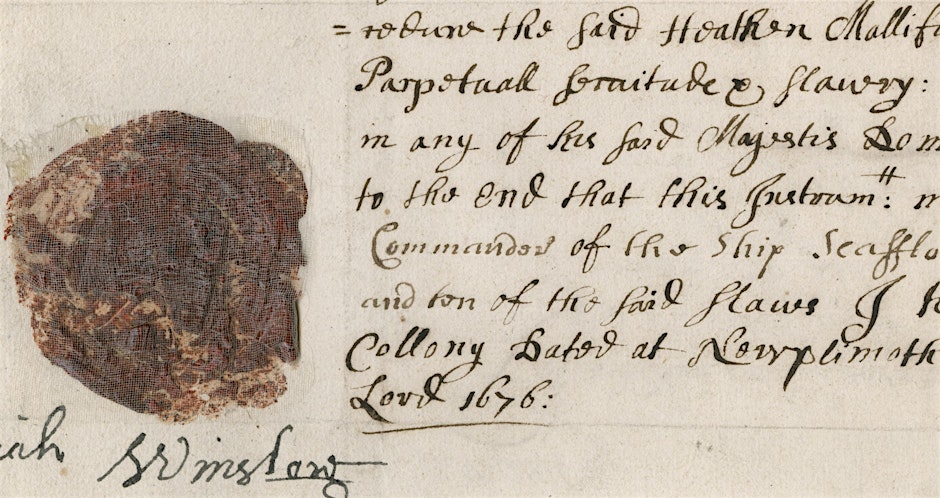 = reduse the said Heathen Mallifa
Parpetuall servitude & slavery:
in any of his said Majestis Dom
to the End that this Instrum:tt m
Commander of the Ship Seafflo
and ten of the said slaves I
Collony Dated at Newplimoth
Lord 1676:
iah Winslow